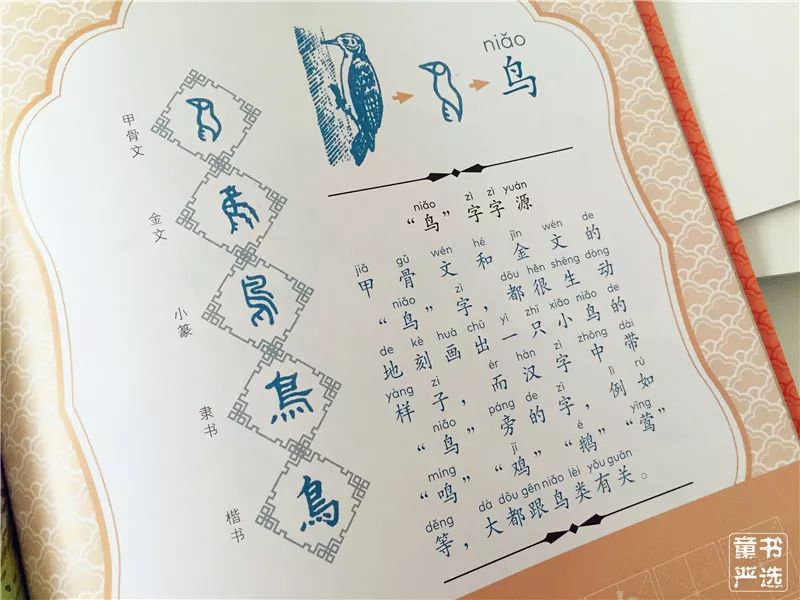 甲骨文
金文
小篆
隶书
楷书
niǎo
鸟
niǎo zì zì yuán
“鸟”字字源
jiǎ gǔ wén hé jīn wén de
甲骨文和金文的
niǎo zì dōu hěn shēng dòng
“鸟”字，都很生动
de kè huà chū yì zhī xiǎo niǎo de
地刻画出一只小鸟的
yàng zi ér hàn zì zhōng dài
样子，而汉字中带
niǎo páng de zì lì rú
“鸟”旁的字，例如
míng jī é yīng
“鸣”“鸡”“鹅”“莺”
děng dà dōu gēn niǎo lèi yǒu guān
等，大都跟鸟类有关。
童书
严选